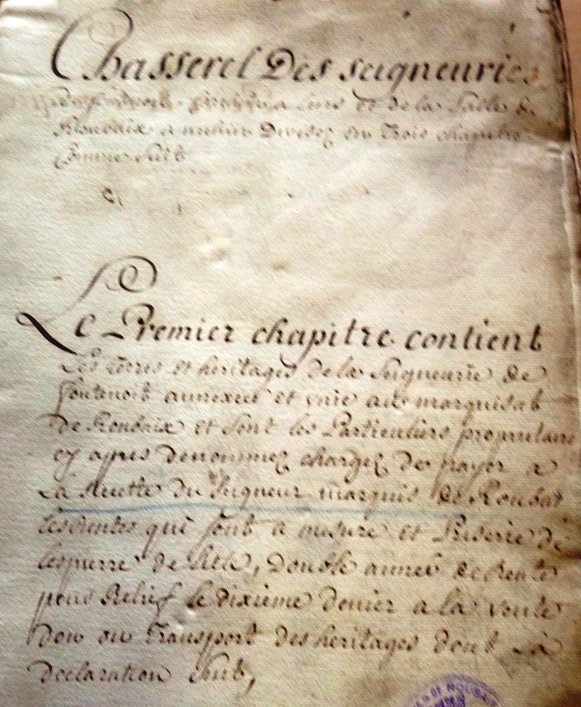 Chasserel Des seigneuries
de la Salle de
Roubaix a Divisez en Trois chapitre
Comme suit
Le Premier chapitre contient
Les terres et heritages de la Seigneurie de
fontenoit annexée et unie au marquisat
de Roubaix et sont les Particuliers proprietaire
cy apres denommez chargez de payer a
La Recette du Seigneur marquis de Roubaix
les rentes qui sont a mesure et Priserie de
de Lille, Double année de Rente
pour Relief le dixieme denier a la vente
don ou Transport des heritages dont La
declaration suit,